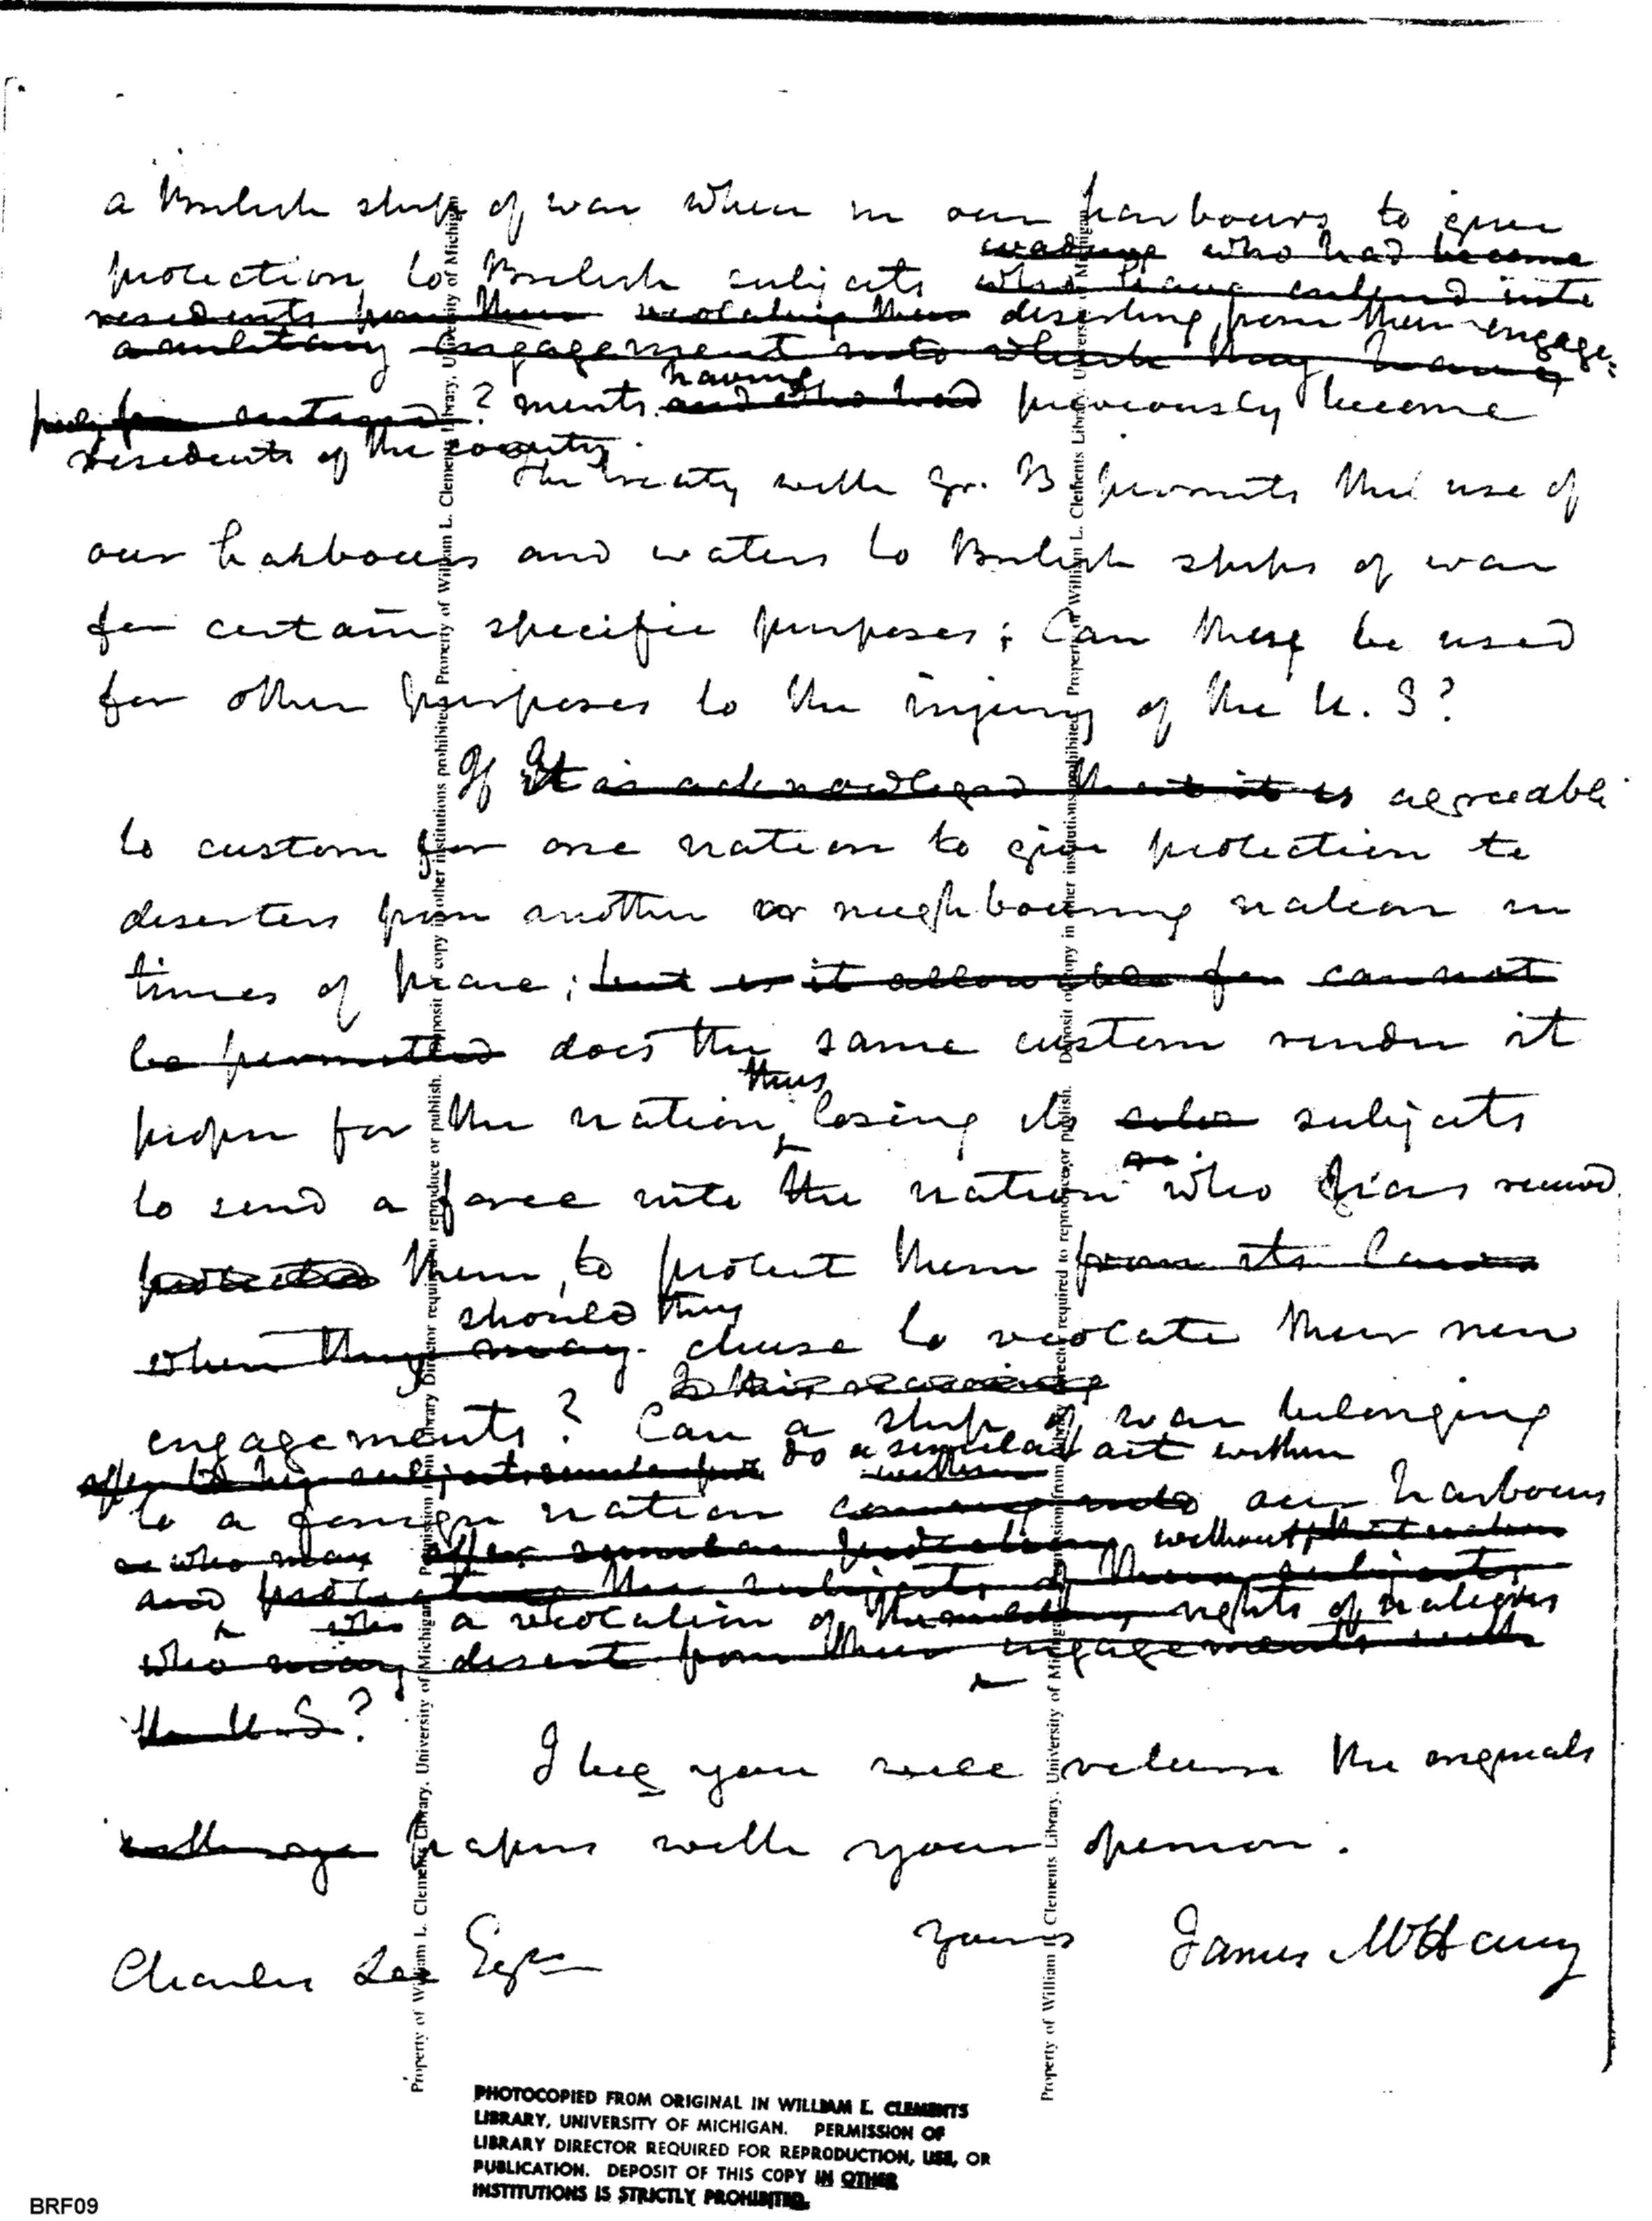 a British ship of war when in our harbours to give
who had become
protection to British subjects who have entered into
residents from their violating their deserting from their engage-
a military engagement into which they have
entered ? ments having and who had previously become
residents of the country.
The treaty with Gr. B permits the use of
our harbours and waters to British ships of war
for certain specific purposes; Can these be used
for other purposes to the injury of the U. S?
If It is acknowledged that it is agreeable
to custom for one nation to give protection to
deserters from another or neighbouring nation in
times of peace; but is it allowable for can not
be permitted does the same custom render it
thus
proper for the nation, losing its subjects
to send a force into the nation who has received
protected them, to protect them from its laws
should they
when they may chuse to violate their new
Is this
engagements? Can a ship of war belonging
offer to his subjects similar do a similar act within
within
to a foreign nation coming into our harbours
who may offer similar protection without that nation
and protecting the subjects of their subjects
who a violation of the rights of nations
who may desert from their engagements with
the U. S?
I beg you will return the originals
papers with your opinion.
Yours James McHenry
Charles Lee Esqr
Property of William L. Clements Library, University of Michigan. Permission from Library Director required to reproduce or publish. Deposit of copy in other institutions prohibited.
Property of William L. Clements Library, University of Michigan. Permission from Library Director required to reproduce or publish. Deposit of copy in other institutions prohibited.
PHOTOCOPIED FROM ORIGINAL IN WILLIAM L. CLEMENTS
LIBRARY, UNIVERSITY OF MICHIGAN. PERMISSION OF
LIBRARY DIRECTOR REQUIRED FOR REPRODUCTION, USE, OR
PUBLICATION. DEPOSIT OF THIS COPY IN OTHER
INSTITUTIONS IS STRICTLY PROHIBITED.
BRF09